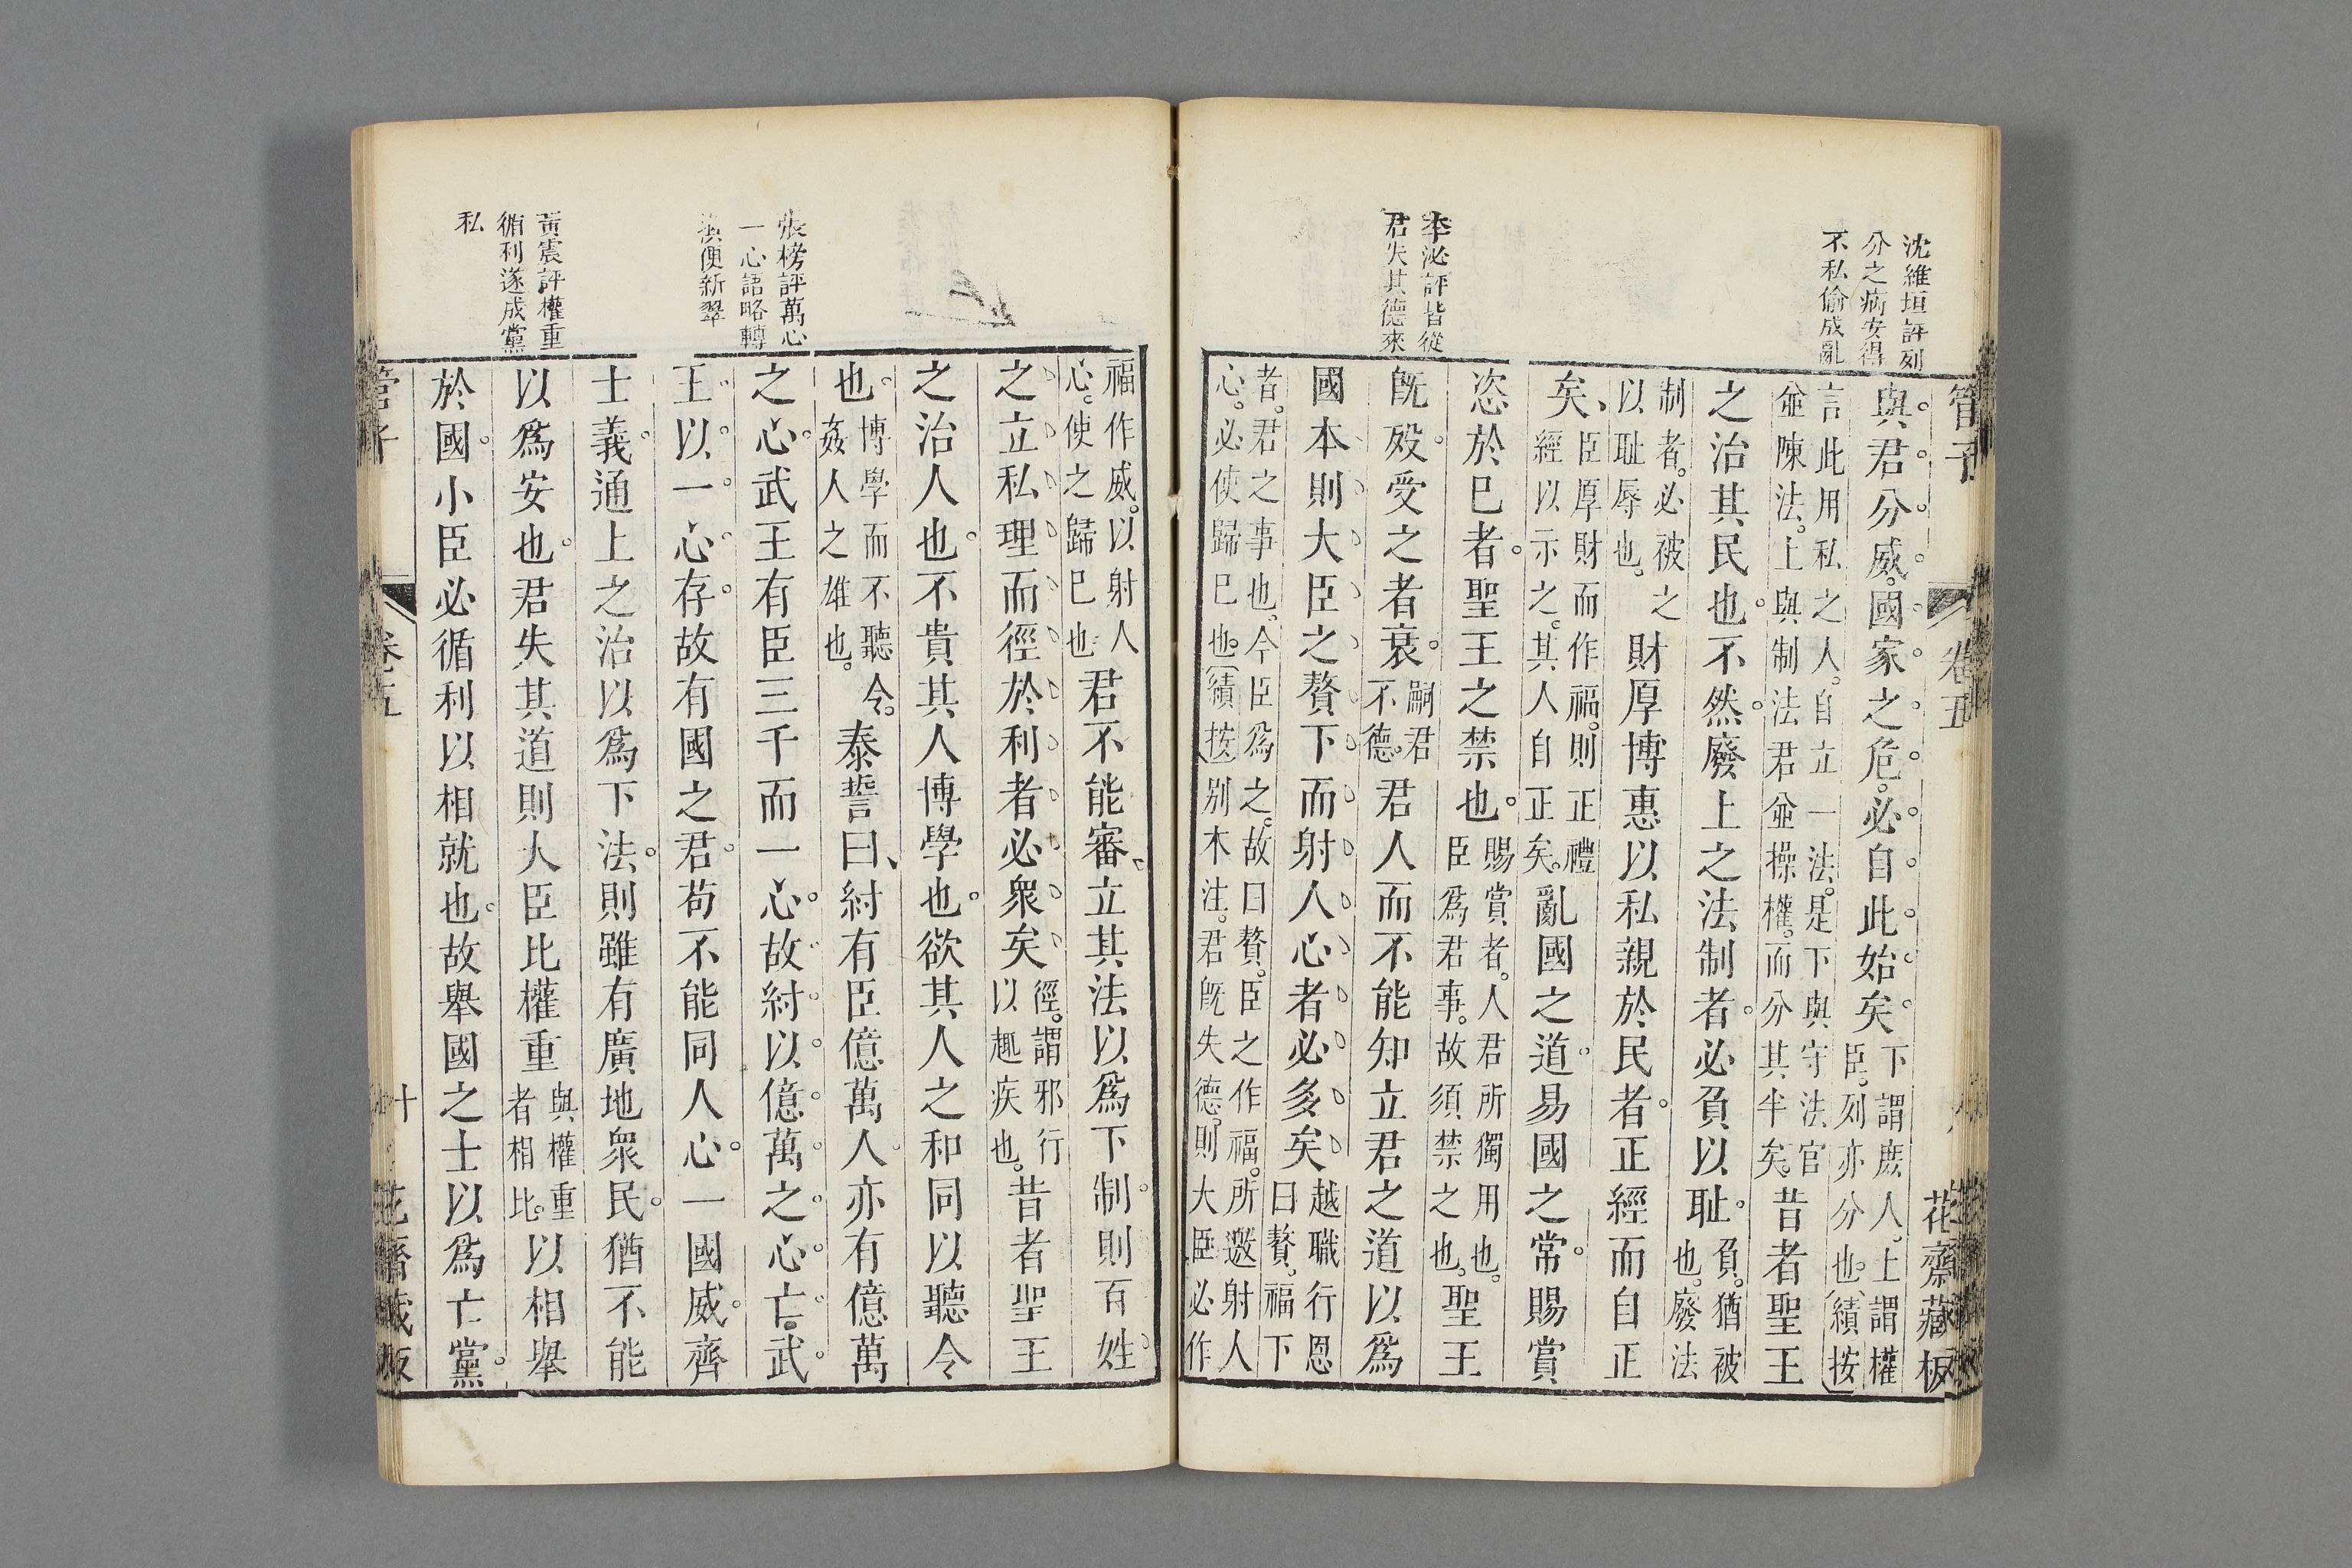 管子
卷五
花齋藏板
沈維垣評列
分之病安得
不私偷成亂
李泌評皆從
君失其德來
與君分威。國家之危。必自此始矣。下謂庶人。上謂權
臣。列亦分也。(績按)
言此用私之人。自立一法。是下與守法官
並陳法。上與制法君並操權。而分其半矣。昔者聖王
之治其民也。不然。廢上之法制者。必負以耻。負。猶被
也。廢法
制者。必被之
以耻辱也。財厚博惠以私親於民者。正經而自正
矣、臣厚財而作福。則正禮
經以示之。其人自正矣。亂國之道。易國之常。賜賞
恣於巳者。聖王之禁也。賜賞者。人君所獨用也。
臣爲君事。故須禁之也。聖王
旣歿。受之者衰。嗣君
不德。君人而不能知立君之道以爲
國本、則、大、臣、之、贅、下、而、射、人、心、者、必、多、矣、越職行恩
曰贅。福下
者。君之事也。今臣爲之。故曰贅。臣之作福。所邀射人
心。必使歸巳也。(績按)别本注。君旣失德。則大臣必作
張榜評萬心
一心語略轉
換便新翠
黃震評權重
循利遂成黨
私
福作威。以射人
心。使之歸巳也 君不能審、立其法以爲下制。則百姓。
之、立、私、理、而、徑、於、利、者、必、衆、矣、徑。謂邪行
以趣疾也。昔者聖王
之治人也。不貴其人博學也。欲其人之和同以聽令
也。博學而不聽令。
姦人之雄也。泰誓曰、紂有臣億萬人。亦有億萬
之心。武王有臣三千而一心。故紂。以。億。萬。之。心。亡。武。
王。以。一。心。存。故有國之君。苟不能同人心。一國威。齊
士義。通上之治以爲下法。則雖有廣地衆民。猶不能
以爲安也。君失其道則大臣比權重與權重
者相比。以相舉
於國。小臣必循利以相就也。故舉國之士以爲亡黨。
管子
卷五
十
花齋藏板